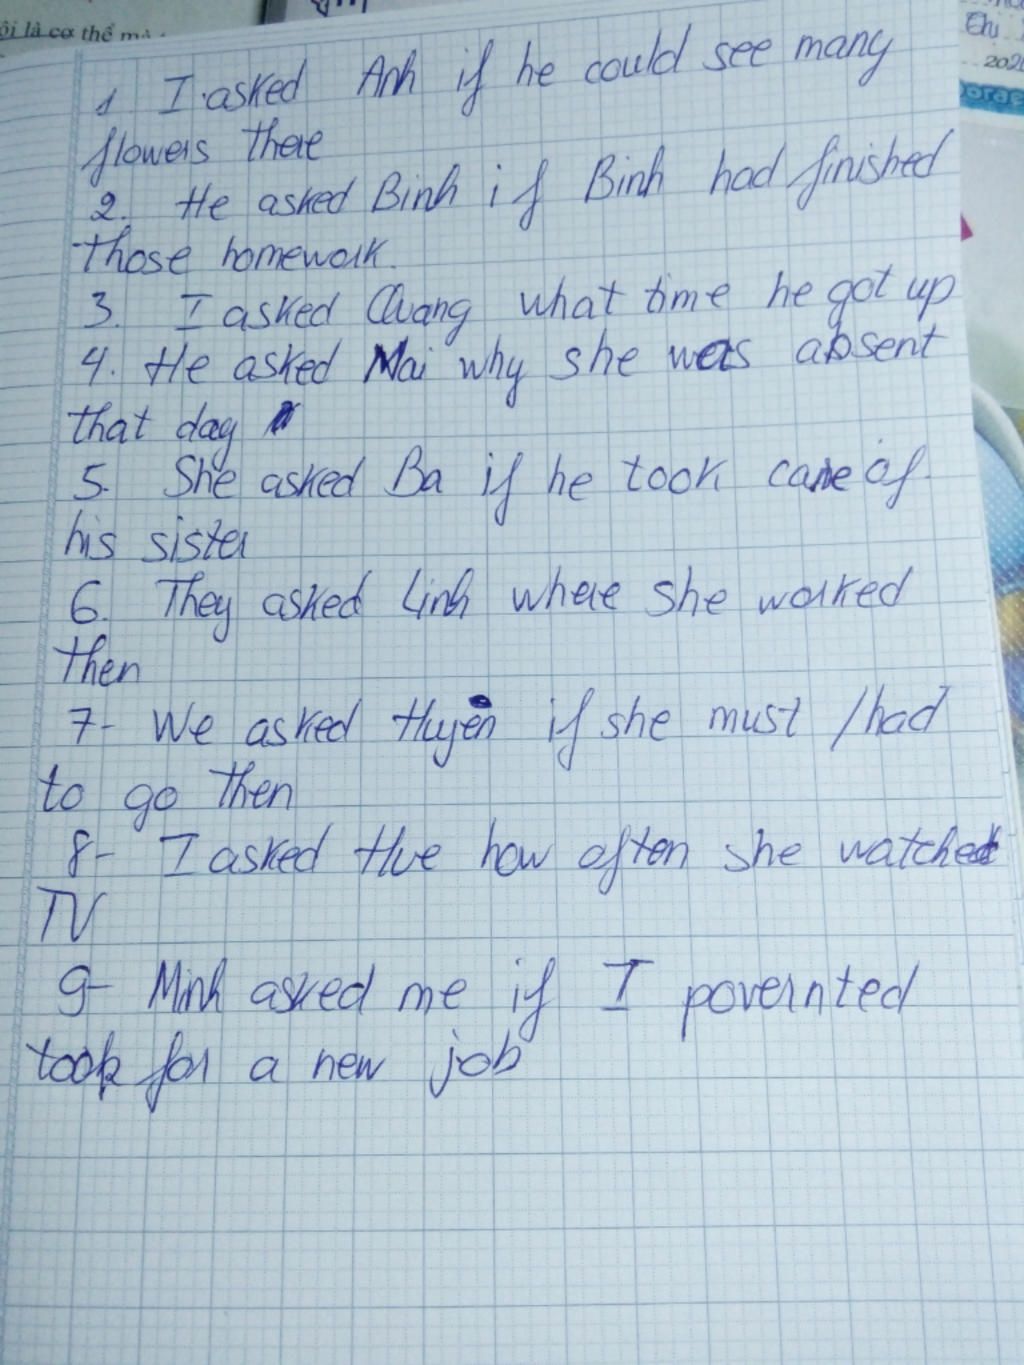 ôi là cơ thể mà
Chi
2020
1 I asked Anh if he could see many
flowers there
2. He asked Binh if Binh had finished
those homework.
3. I asked Quang what time he got up
4. He asked Mai why she was absent
that day
5. She asked Ba if he took care of
his sister
6. They asked Linh where she worked
then
7- We asked Huyền if she must / had
to go then
8- I asked Hue how often she watched
TV
9- Minh asked me if I povernted
took for a new job